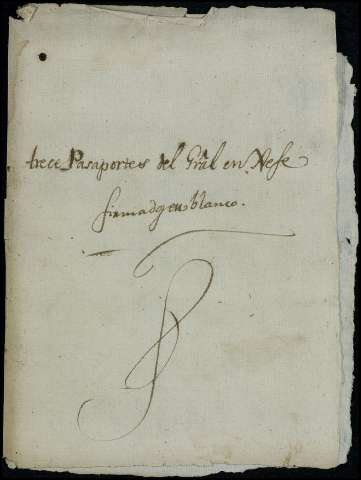 trece Pasaportes del Grãl en Xefe
firmados en blanco.